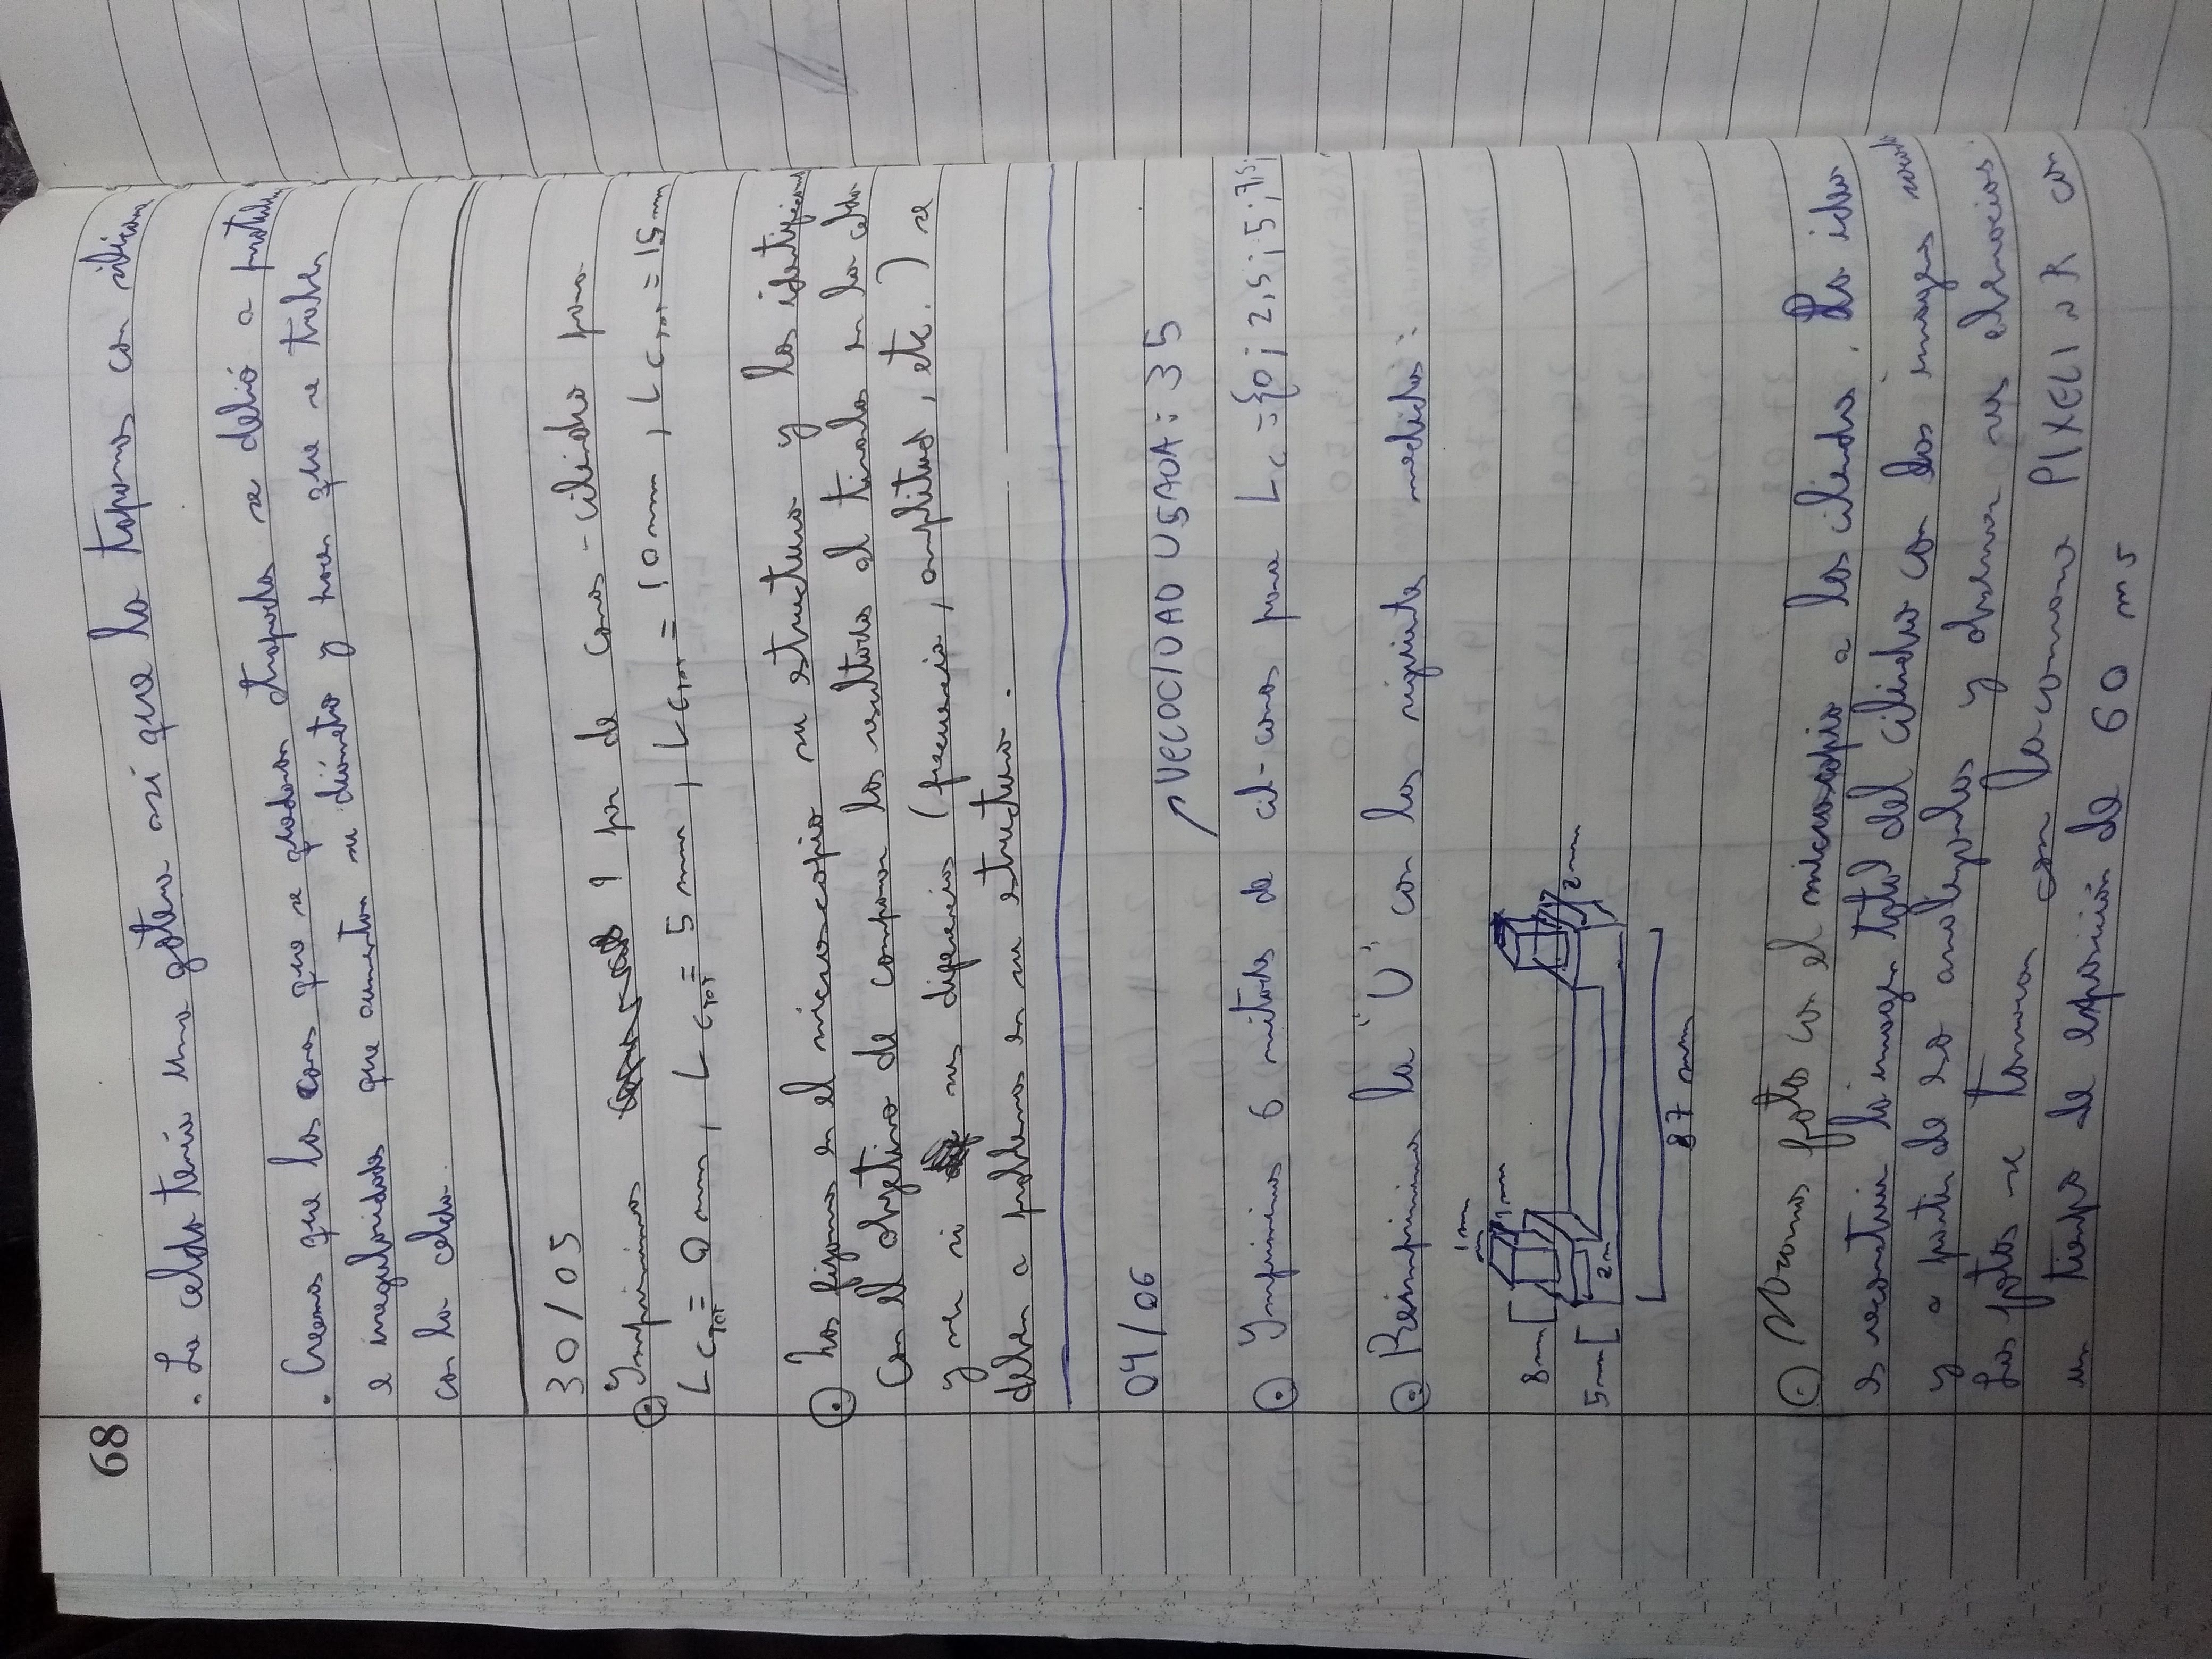 68
. La celda tenía una gotera así que la tapamos con silicona
. Creemos que los conos que se quedaron atrapados se debió a
e irregularidades que aumentan su diámetro y hacen que se traben
con la celda.
30/05
Imprimimos 1 par de conos-cilindro para
L CTOT = 0 mm, L CTOT = 5 mm, L CTOT = 10 mm, L CTOT = 15 mm
Los fijamos en el microscopio su estructura y los identificamos
con el objetivo de comparar los resultados al tirarlos en la celda
y ver si sus diferencias (frecuencia, amplitud, etc.) se
deben a problemas en su estructura.
04/06
VELOCIDAD USADA: 35
Imprimimos 6 mitades de cil-conos para Lc = {0; 2,5; 5; 7,5;
Reimprimimos la "U" con las siguientes medidas:
1mm
1mm
8mm
2mm
5mm
2m
87 mm
Sacamos fotos con el microscopio a los cilindros. La idea
es reconstruir la imagen total del cilindro con las imagenes sacadas
y a partir de eso analizarlas y observar sus
Las fotos se tomaron con la camara PIXELINK con
un tiempo de exposición de 60 ms